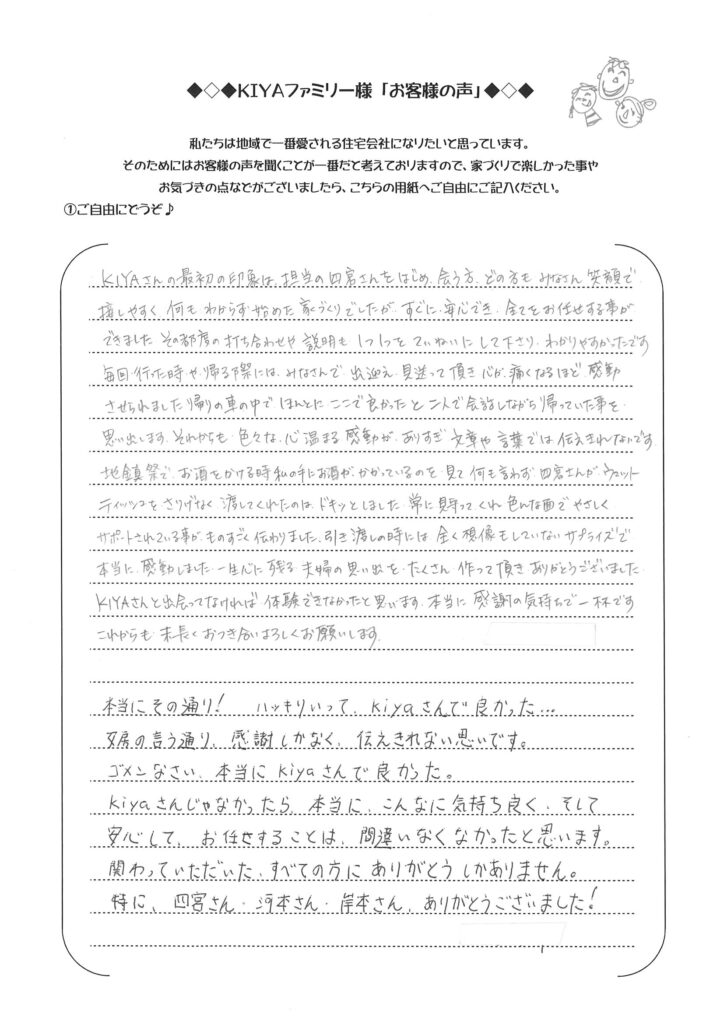 ◆◇◆KIYAファミリー様「お客様の声」◆◇◆
私たちは地域で一番愛される住宅会社になりたいと思っています。
そのためにはお客様の声を聞くことが一番だと考えておりますので、家づくりで楽しかった事や
お気づきの点などがございましたら、こちらの用紙へご自由にご記入ください。
①ご自由にどうぞ♪
KIYAさんの最初の印象は、担当の四宮さんをはじめ、会う方、どの方も みなさん 笑顔で
接しやすく 何も わからず 始めた 家づくりでしたが、すぐに 安心でき、全てを お任せする事が
できました その都度の打ち合わせや 説明も 1つ1つを ていねいに して下さり、わかりやすかったです
毎回 行った時や 帰る際には、みなさんで 出迎え 見送って 頂き 心が 痛くなるほど 感動
させられました 帰りの車の中で ほんとに ここで良かったと 二人で 会話しながら 帰っていた事を
思い出します それからも 色々な 心 温まる 感動が ありすぎ 文章や 言葉では 伝えきれないです
地鎮祭で お酒をかける時 私の手に お酒が かかっているのを 見て 何も言わず 四宮さんが ウェット
ティッシュを さりげなく 渡してくれたのは ドキッとしました 常に 見守って くれ 色んな面で やさしく
サポートされている事が ものすごく 伝わりました 引き渡しの時には 全く 想像もしていない サプライズで
本当に 感動しました 一生 心に 残る 夫婦の 思い出を たくさん 作って 頂き ありがとうございました
KIYAさんと 出会ってなければ 体験できなかったと 思います 本当に 感謝の 気持ちで 一杯です
これからも 末長く おつき合い よろしくお願いします
本当にその通り! ハッキリいって、Kiyaさんで良かった…
女房の言う通り、感謝しかなく、伝えきれない思いです。
ゴメンなさい、本当に Kiyaさんで良かった。
Kiyaさんじゃなかったら、本当に、こんなに気持ち良く、そして
安心して、お任せすることは、間違いなくなかったと思います。
関わっていただいた、すべての方に ありがとう しかありません。
特に、四宮さん・河本さん・岸本さん、ありがとうございました!